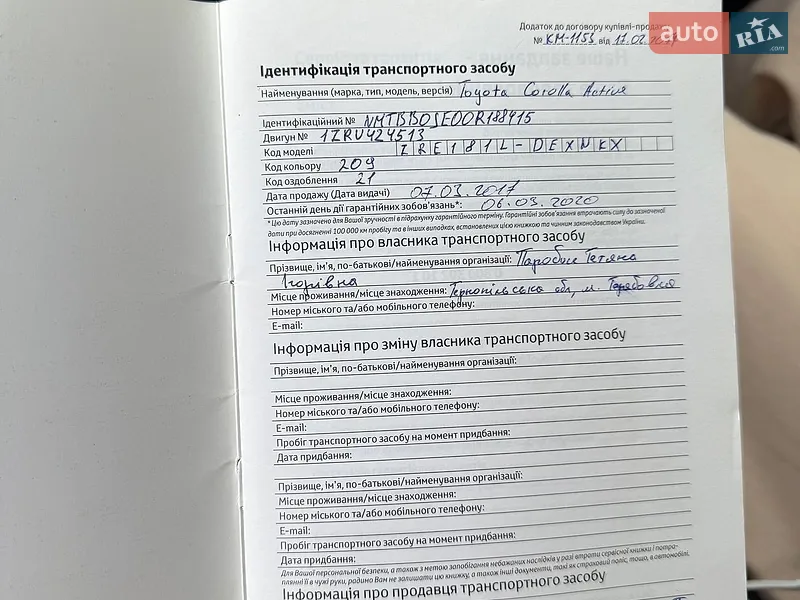 Додаток до договору купівлі-продажу
№ КМ-1153 від 17.02.2017
auto RIA .com
Ідентифікація транспортного засобу
Найменування (марка, тип, модель, версія) Toyota Corolla Active
Ідентифікаційний № NMTBB0JE00R188415
Двигун № 1ZRU424513
Код моделі ZRE181L-DEXNKX
Код кольору 209
Код оздоблення 21
Дата продажу (Дата видачі) 07.03.2017
Останній день дії гарантійних зобов'язань*: 06.03.2020
* Цю дату зазначено для Вашої зручності в підрахунку гарантійного терміну. Гарантійні зобов'язання втрачають силу до зазначеної
дати при досягненні 100 000 км пробігу та в інших випадках, встановлених цією книжкою та чинним законодавством України.
Інформація про власника транспортного засобу
Прізвище, ім'я, по-батькові/найменування організації: Тетяна
Ігорівна
Місце проживання/місце знаходження: Тернопільська обл, м. Теребовля
Номер міського та/або мобільного телефону:
E-mail:
Інформація про зміну власника транспортного засобу
Прізвище, ім'я, по-батькові/найменування організації:
Місце проживання/місце знаходження:
Номер міського та/або мобільного телефону:
E-mail:
Пробіг транспортного засобу на момент придбання:
Дата придбання:
Прізвище, ім'я, по-батькові/найменування організації:
Місце проживання/місце знаходження:
Номер міського та/або мобільного телефону:
E-mail:
Пробіг транспортного засобу на момент придбання:
Дата придбання:
Для Вашої персональної безпеки, а також з метою запобігання небажаних наслідків у разі втрати сервісної книжки і потра-
плянні її в чужі руки, радимо Вам не залишати цю книжку, а також інші документи, такі як страховий поліс, тощо, в автомобілі.
Інформація про продавця транспортного засобу